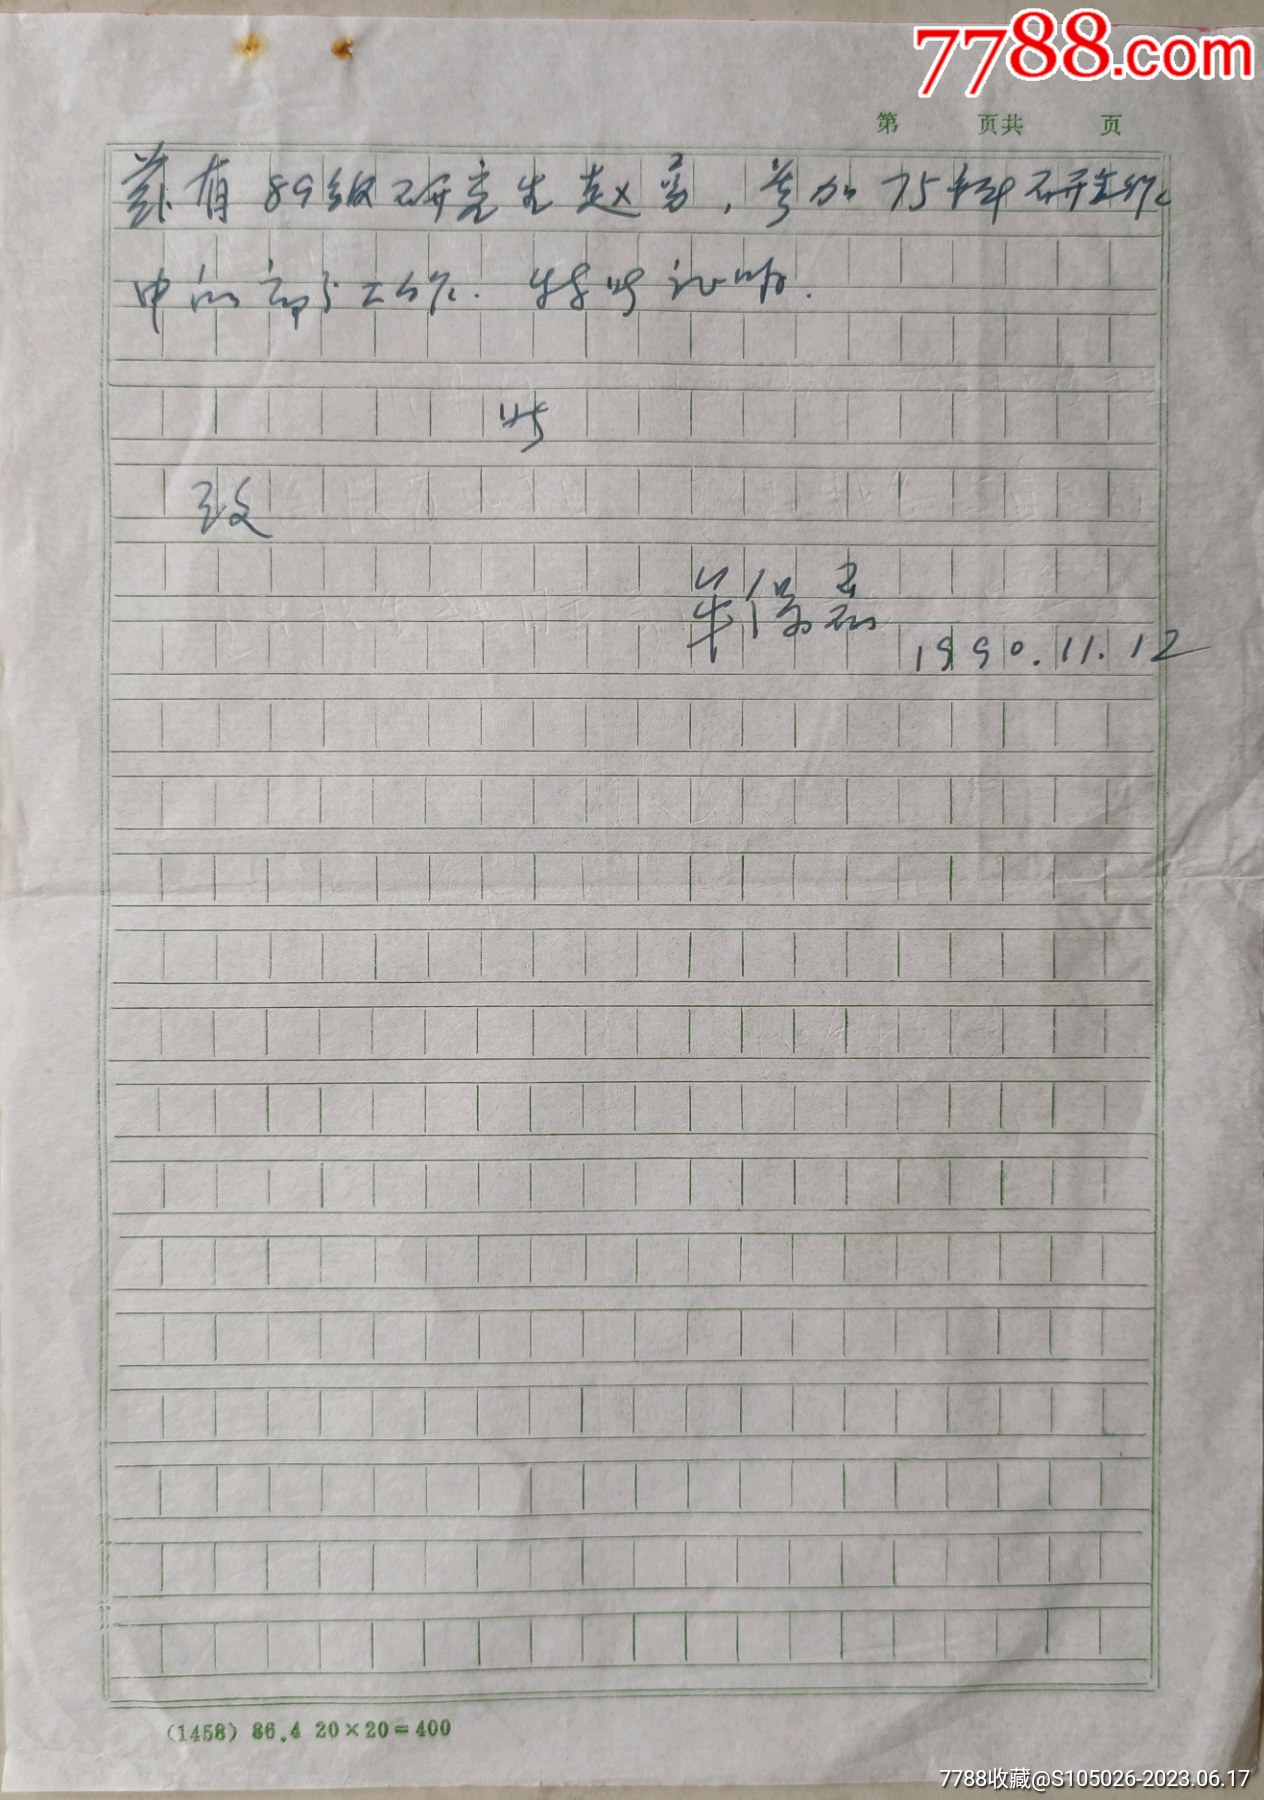 7788.com
第 页共 页
兹有89级研究生赵勇，参加75科研工作
中的部分工作．特此证明．
此
致
1990.11.12
(1458) 86.4 20×20=400
7788收藏@S105026-2023.06.17